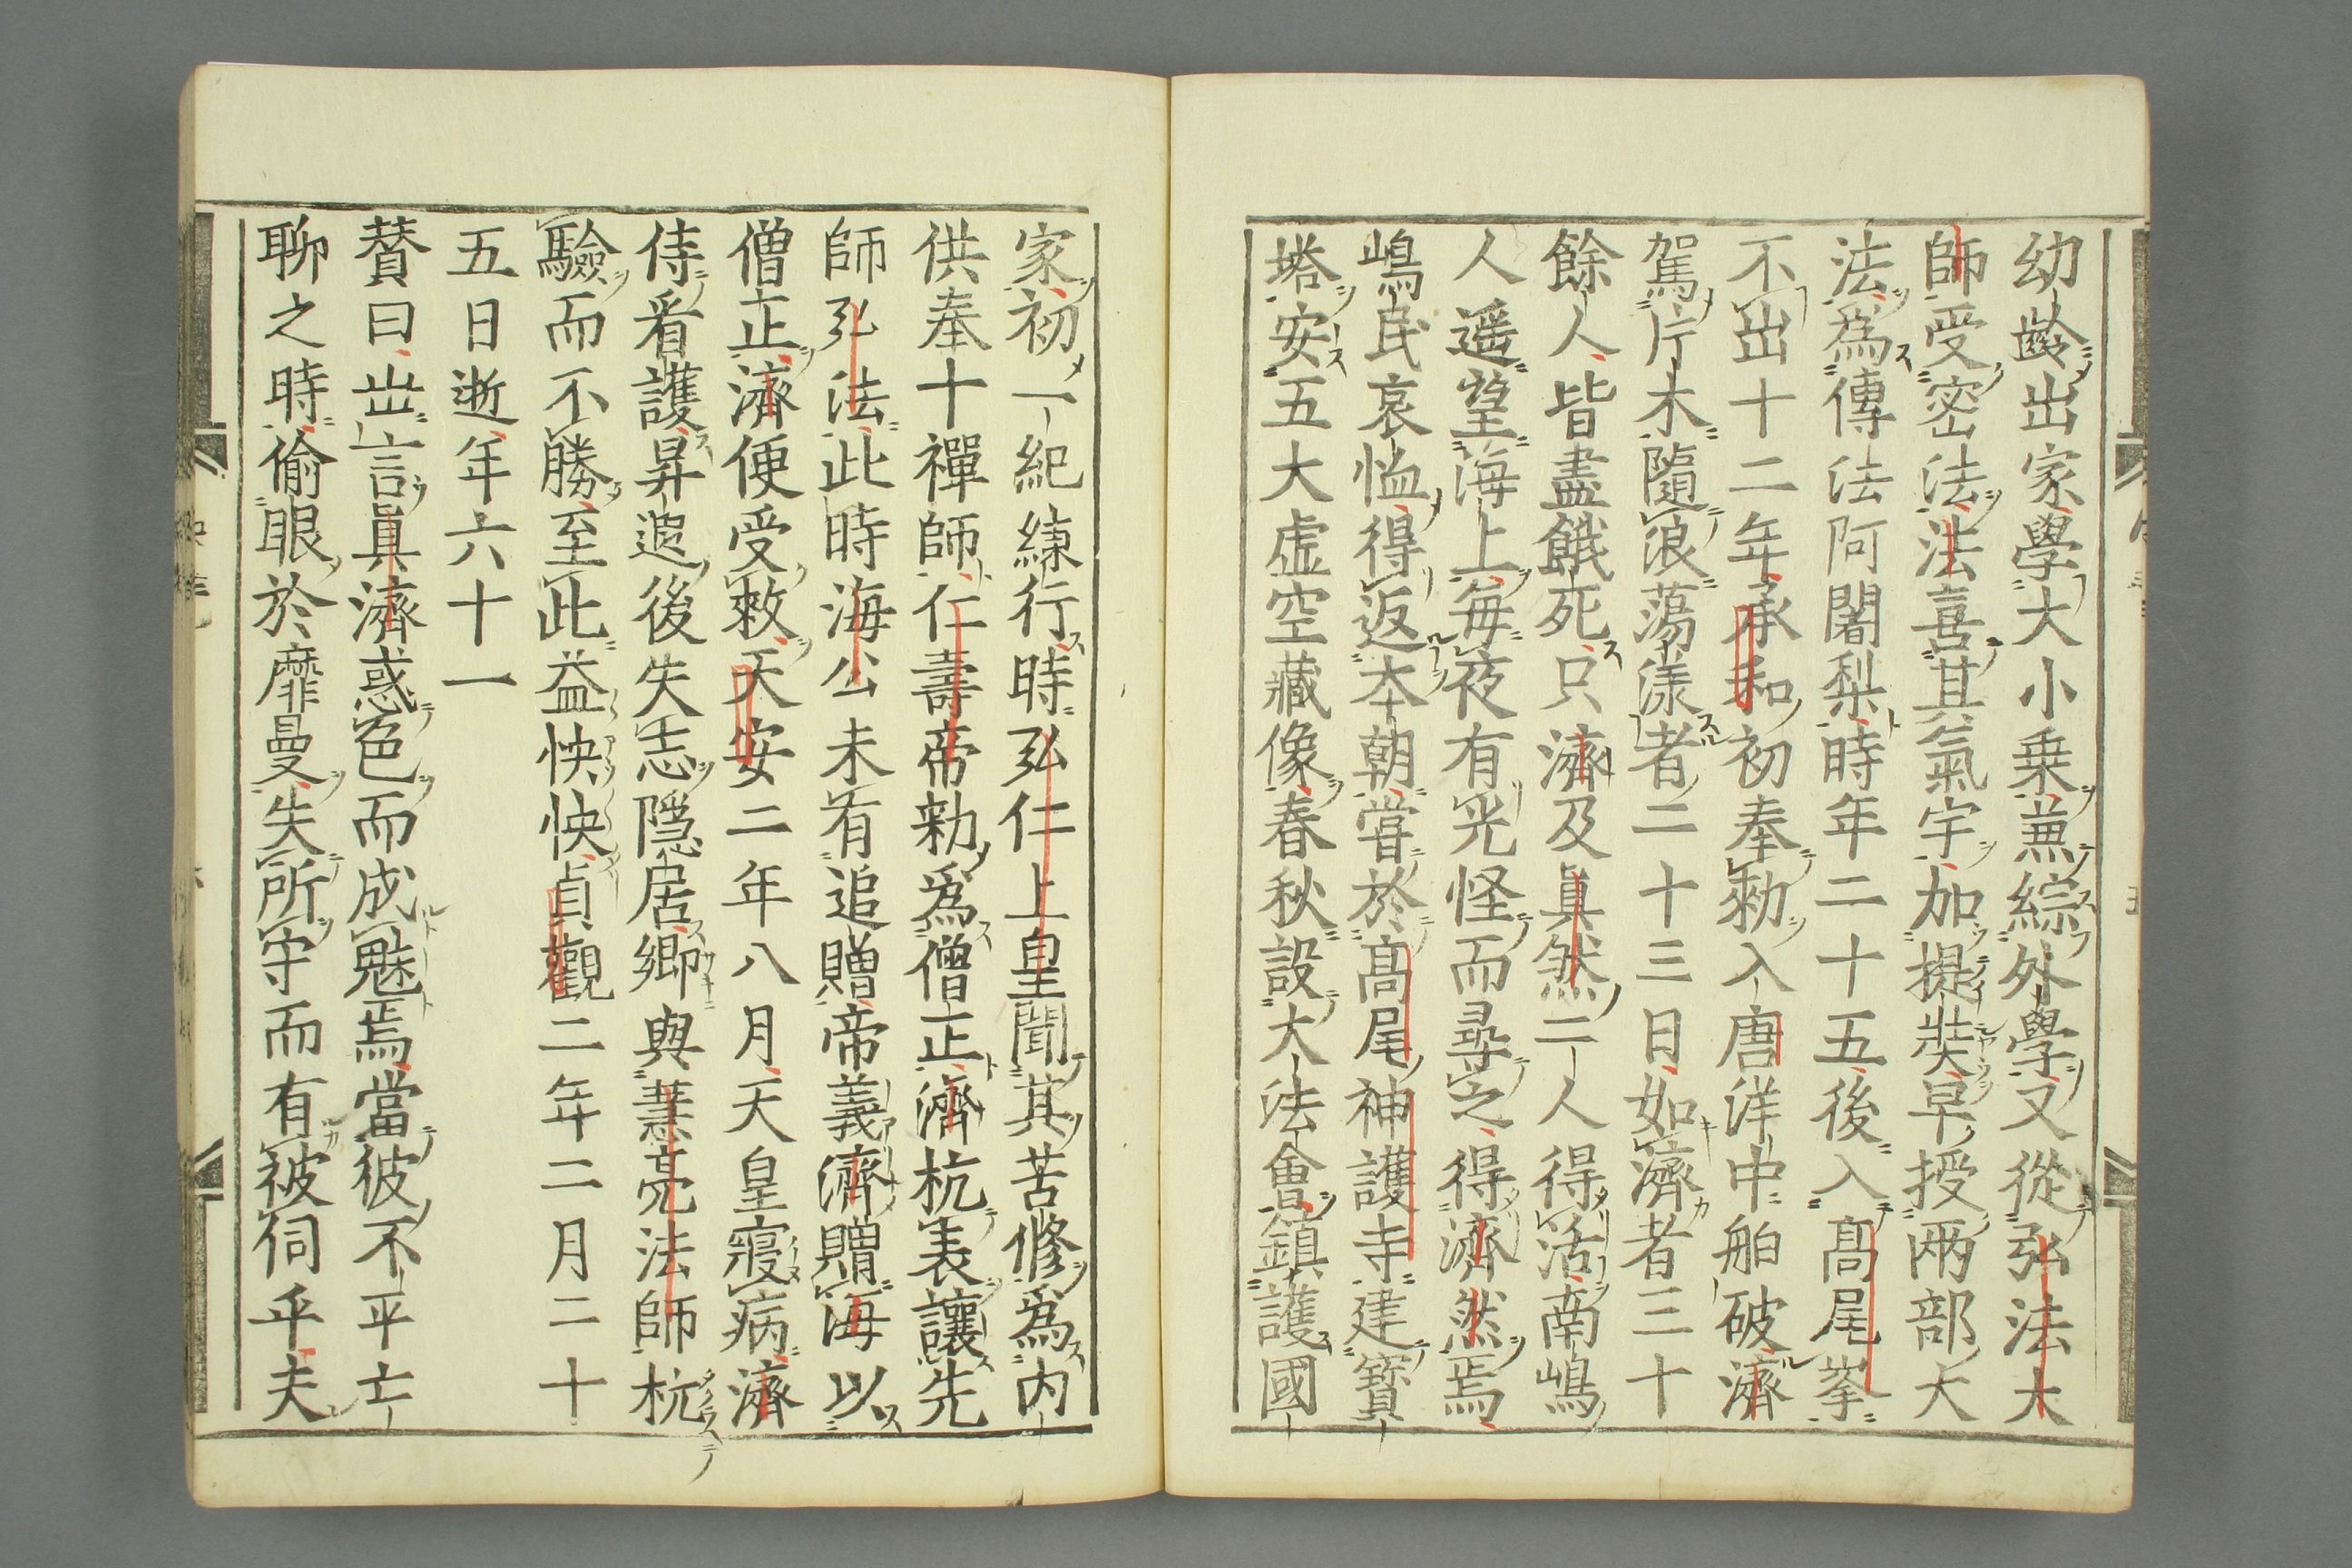 幼齡出家學大小乗兼綜外學又從弘法大
師受密法法喜其氣宇加提奘早授兩部大
法爲傳法阿闍梨時年二十五後入髙尾峯
不出十二年承和初奉勅入唐洋中舶破濟
駕片木隨浪蕩漾者二十三日如濟者三十
餘人皆盡餓死只濟及眞然二人得活南嶋
人遥望海上毎夜有光怪而尋之得濟然焉
嶋民哀恤得返本朝甞於髙尾神護寺建寳
塔安五大虚空藏像春秋設大法會鎮護國
家初一紀練行時弘仁上皇聞其苦修爲内
供奉十禪師仁壽帝勅爲僧正濟杭表讓先
師弘法此時海公未有追贈帝義濟贈海以
僧正濟便受敕天安二年八月天皇寢病濟
侍看護昇遐後失志隱居郷與慧亮法師杭
驗而不勝至此益怏怏貞觀二年二月二十
五日逝年六十一
賛曰世言眞濟惑色而成魅焉當彼不平亡
聊之時偷眼於靡曼失所守而有被伺乎夫